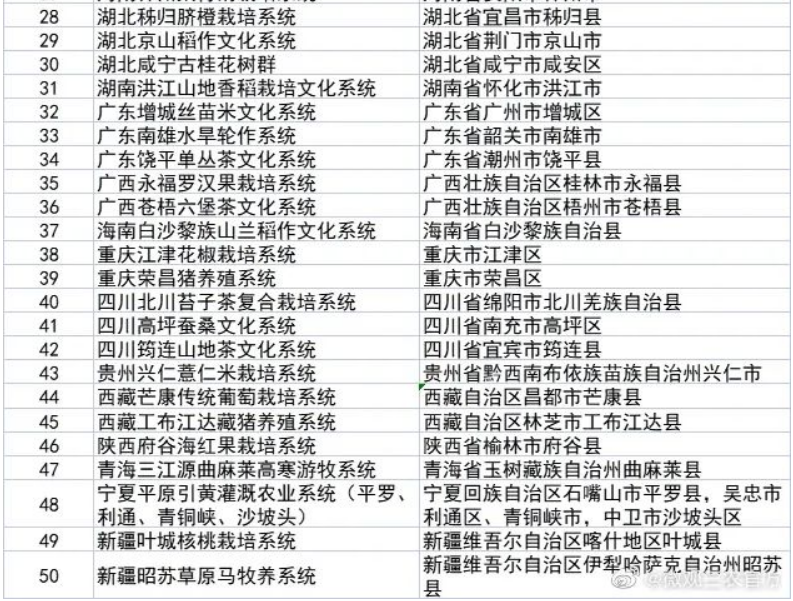 28 湖北秭归脐橙栽培系统 湖北省宜昌市秭归县
29 湖北京山稻作文化系统 湖北省荆门市京山市
30 湖北咸宁古桂花树群 湖北省咸宁市咸安区
31 湖南洪江山地香稻栽培文化系统 湖南省怀化市洪江市
32 广东增城丝苗米文化系统 广东省广州市增城区
33 广东南雄水旱轮作系统 广东省韶关市南雄市
34 广东饶平单丛茶文化系统 广东省潮州市饶平县
35 广西永福罗汉果栽培系统 广西壮族自治区桂林市永福县
36 广西苍梧六堡茶文化系统 广西壮族自治区梧州市苍梧县
37 海南白沙黎族山兰稻作文化系统 海南省白沙黎族自治县
38 重庆江津花椒栽培系统 重庆市江津区
39 重庆荣昌猪养殖系统 重庆市荣昌区
40 四川北川苔子茶复合栽培系统 四川省绵阳市北川羌族自治县
41 四川高坪蚕桑文化系统 四川省南充市高坪区
42 四川筠连山地茶文化系统 四川省宜宾市筠连县
43 贵州兴仁薏仁米栽培系统 贵州省黔西南布依族苗族自治州兴仁市
44 西藏芒康传统葡萄栽培系统 西藏自治区昌都市芒康县
45 西藏工布江达藏猪养殖系统 西藏自治区林芝市工布江达县
46 陕西府谷海红果栽培系统 陕西省榆林市府谷县
47 青海三江源曲麻莱高寒游牧系统 青海省玉树藏族自治州曲麻莱县
48 宁夏平原引黄灌溉农业系统（平罗、 宁夏回族自治区石嘴山市平罗县，吴忠市
利通、青铜峡、沙坡头） 利通区、青铜峡市，中卫市沙坡头区
49 新疆叶城核桃栽培系统 新疆维吾尔自治区喀什地区叶城县
50 新疆昭苏草原马牧养系统 新疆维吾尔自治区伊犁哈萨克自治州昭苏
县
@微观三农官方